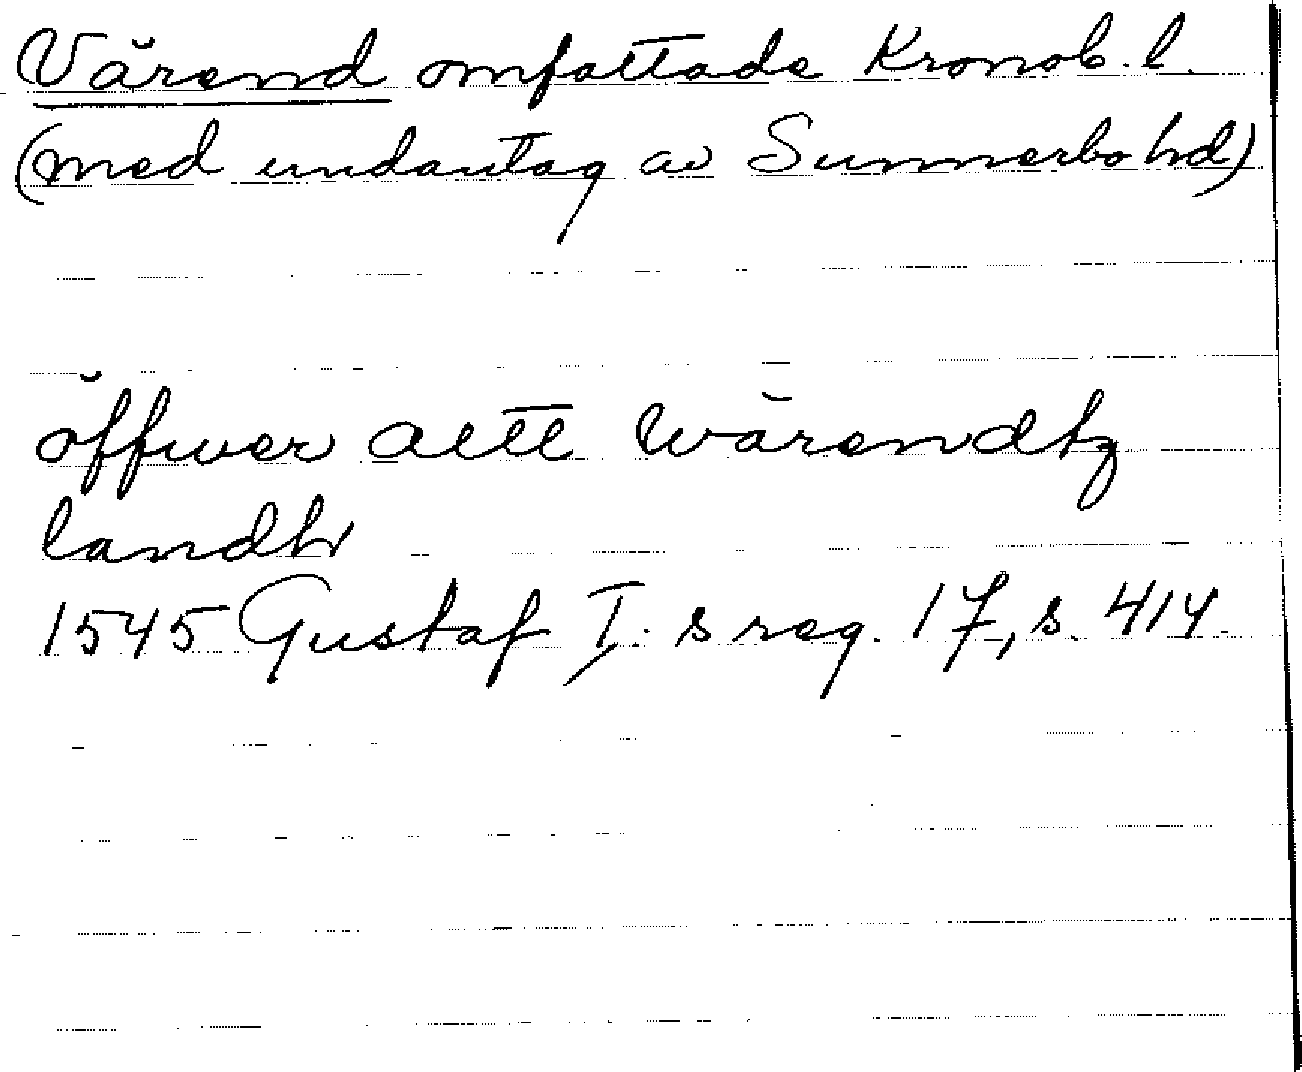 Värend omfattade Kronob. l.
(med undantag av Sunnerbo hd)
öffwer altt Wärendtz
landh
1545 Gustaf I:s reg. 17, s. 414